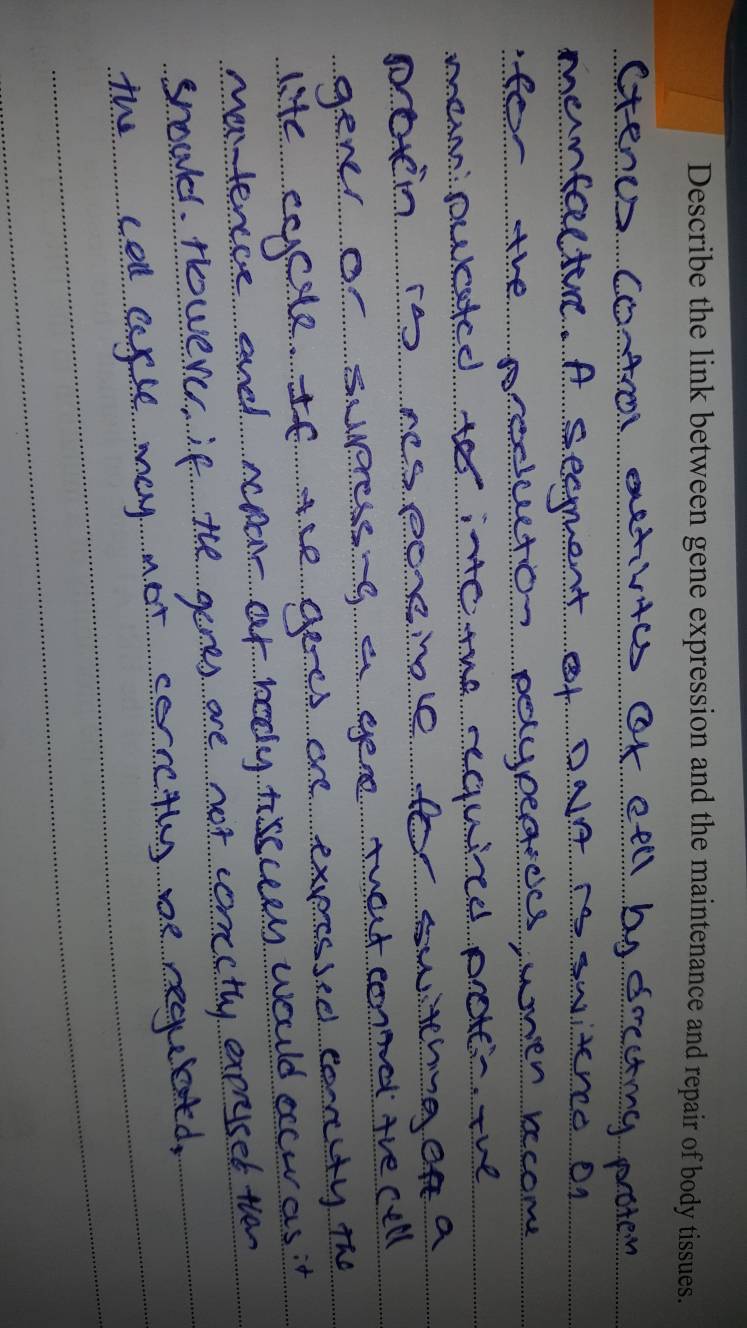 Describe the link between gene expression and the maintenance and repair of body tissues.
Genes control activites of cell by directing protein
manufacture. A segment of DNA is switched on
for the production polypeptides, which become
manipulated to into the required protein. The
protein is responcinble for switching off a
gener or surpressing a gene that control the cell
life cycle. If the genes are expressed correctly the
maintence and repair of body tissues would occur as it
should. However, if the genes are not correctly expressed then
the cell cycle may not correctly be regulated.